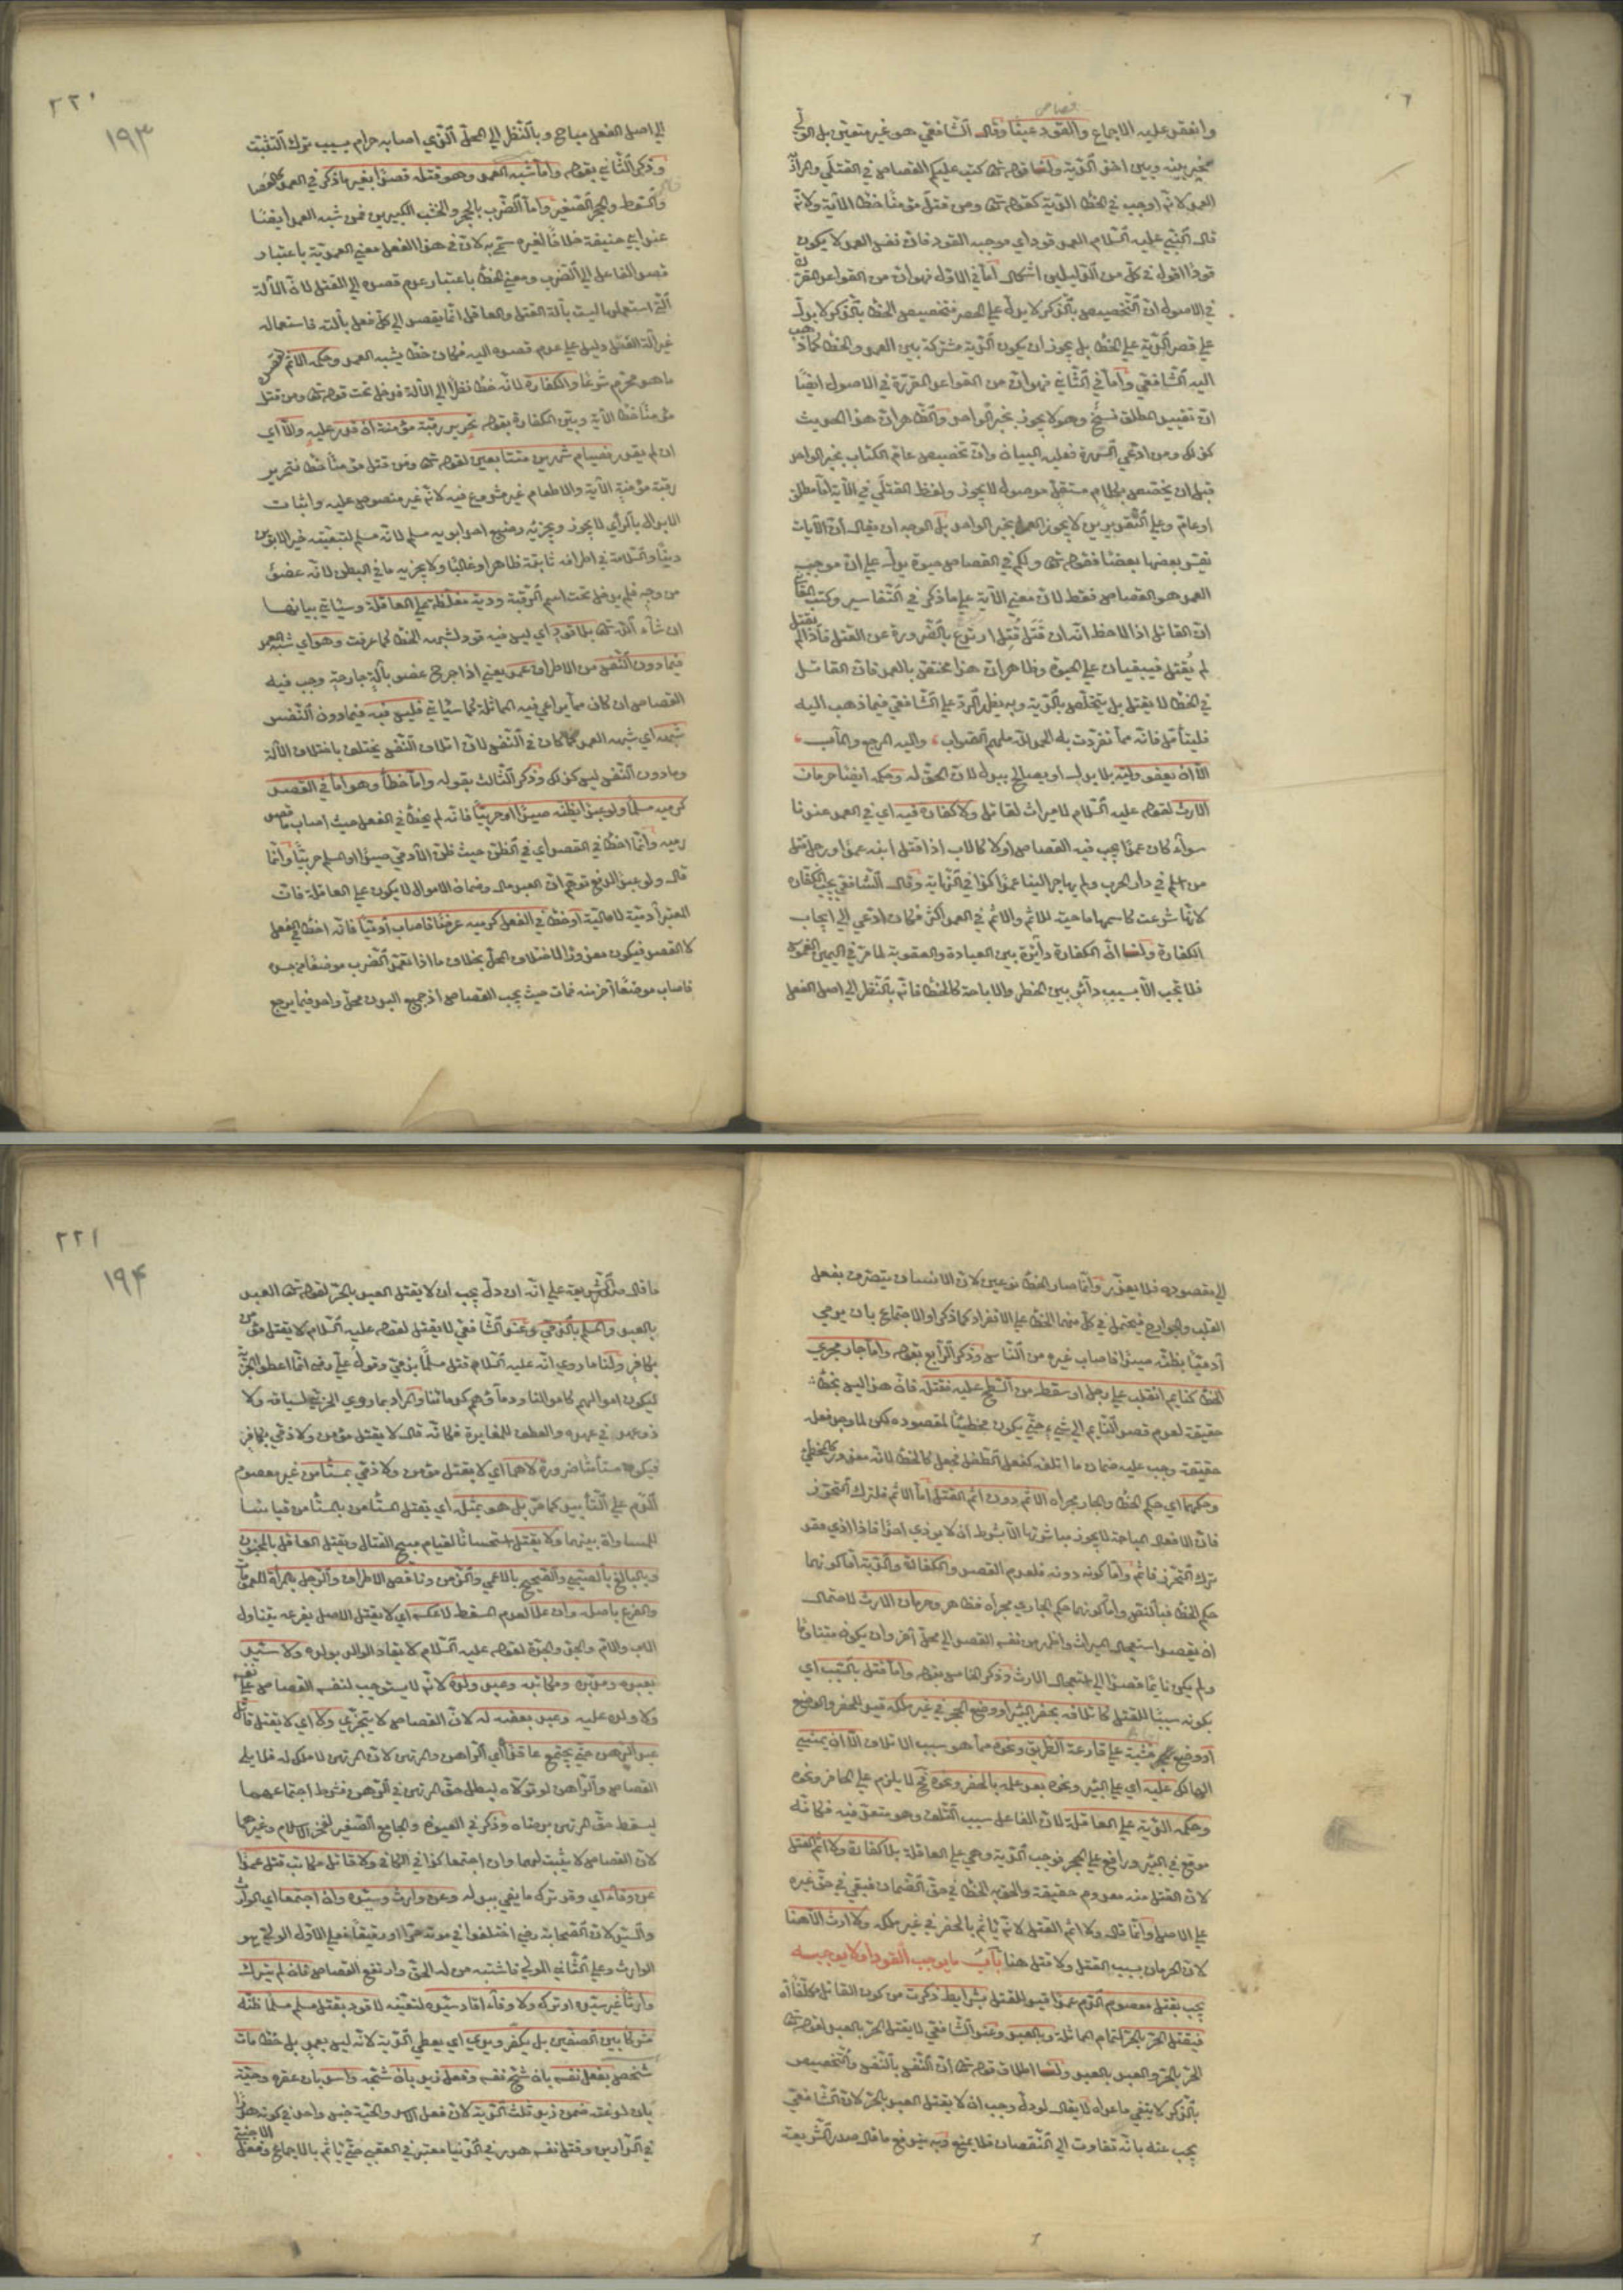 قصاص
وانعقد عليه الاجماع والقود عينًا وقال الشافعي هو غير متعين بل الولي
مخير بينه وبين اخذ الدية ولنا قوله تعالى كتب عليكم القصاص في القتلى والمراد
العمد لانه اوجب في الخطأ الدية كقوله تعالى ومن قتل مؤمنا خطأ الآية ولانه
قال النبي عليه السلام العمد قود اي موجبه القود فان نفس العمد لا يكون
قودا اقول في كل من الدليلين اشكال اما في الاول فهو ان من القواعد المقررة
في الاصول ان التخصيص بالذكر لا يدل على الحصر فتخصيص الخطأ بالذكر لا يدل
على قصر الدية على الخطأ بل يجوز ان يكون الدية مشتركة بين العمد والخطأ كما ذهب
اليه الشافعي واما في الثاني فهو ان من القواعد المقررة في الاصول ايضا
ان تقييد المطلق نسخ وهو لا يجوز بخبر الواحد والظاهر ان هذا الحديث
كذلك ومن ادعى الشهرة فعليه البيان وان تخصيص عام الكتاب بخبر الواحد
قبل ان يخصص بكلام مستقل موصول لا يجوز ولفظ القتلى في الآية اما مطلق
او عام وعلى التقديرين لا يجوز العمل بخبر الواحد بل الوجه ان يقال ان الآيات
يفسر بعضها بعضا فقوله تعالى ولكم في القصاص حيوة يدل على ان موجب
العمد هو القصاص فقط لان معنى الآية على ما ذكر في التفاسير وكتب
ان القاتل اذا لاحظ انه ان قَتَل قُتِل ارتدع بالضرورة عن القتل فاذا لم يقتل
لم يُقتل فيبقيان على الحيوة وظاهر ان هذا مختص بالعمد فان القاتل
في الخطأ لا يقتل بل يتخلص بالدية وبه يظهر الرد على الشافعي فيما ذهب اليه
فليتأمل فانه مما تفردت به الحمد لله ملهم الصواب، واليه المرجع والمآب،
الا ان يعفو وليه بلا بدل او يصالح ببدل لان الحق له وحكمه ايضا حرمان
الارث لقوله عليه السلام لا ميراث لقاتل ولا كفارة فيه اي في العمد عندنا
سواء كان عمدا يجب فيه القصاص او لا كالاب اذا قتل ابنه عمدا ورجل قتل
من اسلم في دار الحرب ولم يهاجر الينا عمدا كذا في النهاية وقال الشافعي يجب الكفارة
لانها شرعت كاسمها ماحية للاثم والاثم في العمد اكثر فكان ادعى الى ايجاب
الكفارة ولنا ان الكفارة دائرة بين العبادة والعقوبة لما مر في اليمين الغموس
فلا تجب الا بسبب دائر بين الحظر والاباحة كالخطأ فانه بالنظر الى اصل الفعل
٢٢٠
١٩٣
الى اصل الفعل مباح وبالنظر الى المحل الذي اصابه حرام بسبب ترك التثبت
وذكر الثاني بقوله واما شبه العمد وهو قتله قصدا بغير ما ذكر في العمد كالعصا
والسوط والحجر الصغير واما الضرب بالحجر والخشب الكبيرين فمن شبه العمد ايضا
عند ابي حنيفة خلافا لغيره سمي به لان في هذا الفعل معنى العمدية باعتبار
قصد الفاعل الى الضرب ومعنى الخطأ باعتبار عدم قصده الى القتل لان الآلة
التي استعملها ليست بآلة القتل والعاقل انما يقصد الى كل فعل بآلته فاستعماله
غير آلة القتل دليل على عدم قصده اليه فكان خطأ يشبه العمد وحكمه الاثم
ما هو محرم شرعا والكفارة لانه خطأ نظرا الى الآلة فدخل تحت قوله تعالى ومن قتل
مؤمنا خطأ الآية وبين الكفارة بقوله تحرير رقبة مؤمنة ان قدر عليه والا اي
ان لم يقدر فصيام شهرين متتابعين لقوله تعالى ومن قتل مؤمنا خطأ فتحرير
رقبة مؤمنة الآية والاطعام غير مشروع فيه لانه غير منصوص عليه واثبات
الابدال بالرأي لا يجوز ويجزئه رضيع احد ابويه مسلم لانه مسلم لتبعيته خير الابوين
دينا والسلامة في اطرافه ثابتة ظاهرا وغالبا ولا يجزيه ما في البطن لانه عضو
من وجه فلم يدخل تحت اسم الرقبة ودية مغلظة على العاقلة وسيأتي بيانها
ان شاء الله تعالى بلا قود اي ليس فيه قود لشبهه الخطأ كما عرفت وهو اي شبه العمد
فيما دون النفس من الاطراف عمد يعني اذا جرح عضو بآلة جارحة وجب فيه
القصاص ان كان مما يراعى فيه المماثلة كما سيأتي فليس فيه فيما دون النفس
شبهه اي شبه العمد كما كان في النفس لان اتلاف النفس يختلف باختلاف الآلة
وما دون النفس ليس كذلك وذكر الثالث بقوله واما خطأ وهو اما في القصد
كرميه مسلما ولو عبدا يظنه صيدا او حربيا فانه لم يخطأ في الفعل حيث اصاب ما قصد
رميه وانما اخطأ في القصد اي في الظن حيث ظن الآدمي صيدا او المسلم حربيا وانما
قال ولو عبدا لدفع توهم ان العبد مال وضمان الاموال لا يكون على العاقلة فان
المعتبر آدميته لا ماليته او خطأ في الفعل كرميه غرضا فاصاب آدميا فانه اخطأ في الفعل
لا القصد فيكون معذورا لاختلاف المحل بخلاف ما اذا تعمد الضرب موضعا من جسده
فاصاب موضعا آخر منه فمات حيث يجب القصاص اذ جميع البدن محل واحد فيما يرجع
الى مقصوده فلا يعذر وانما صار الخطأ نوعين لان الانسان يتصرف بفعل
القلب والجوارح فيحتمل في كل منهما الخطأ على الانفراد كما ذكر او الاجتماع بان يرمي
آدميا يظنه صيدا فاصاب غيره من الناس وذكر الرابع بقوله واما جار مجرى
الخطأ كنائم انقلب على رجل او سقط من السطح عليه فقتله فان هذا ليس بخطأ
حقيقة لعدم قصد النائم الى شيء حتى يكون مخطئا لمقصوده لكن لما وجد فعله
حقيقة وجب عليه ضمان ما اتلف كفعل الطفل فجعل كالخطأ لانه معذور كالمخطئ
وحكمهما اي حكم الخطأ والجار مجراه الاثم دون اثم القتل اما الاثم فلترك التحرز
فان الافعال المباحة لا يجوز مباشرتها الا بشرط ان لا يؤذي احدا فاذا اذى فقد
ترك التحرز فاثم واما كونه دونه فلعدم القصد والكفارة والدية اما كونهما
حكم الخطأ فبالنص واما كونهما حكم الجاري مجراه فظاهر وحرمان الارث لاحتمال
ان يقصد استعجال الميراث واظهر من نفسه القصد الى محل آخر وان يكون متناوما
ولم يكن نائما قصدا الى استعجال الارث وذكر الخامس بقوله واما قتل بالتسبب اي
بكونه سببا للقتل كاتلافه بحفر البئر او وضع الحجر في غير ملكه قيد للحفر والوضع
او وضع خشبة على قارعة الطريق ونحوه مما هو سبب الاتلاف الا ان يمشي
الهالك عليه اي على البئر ونحوه بعد علمه بالحفر ونحوه فح لا يلزم على الحافر ونحوه
وحكمه الدية على العاقلة لان الفاعل سبب التلف وهو متعد فيه فكانه
موقع في البئر ودافع على الحجر فوجب الدية وهي على العاقلة بلا كفارة ولا اثم القتل
لان القتل منه معدوم حقيقة والحق به الخطأ في حق الضمان فبقي في حق غيره
على الاصل وانما قال ولا اثم القتل لانه يأثم بالحفر في غير ملكه ولا ارث الا هنا
لان الحرمان بسبب القتل ولا قتل هنا باب ما يوجب القود او لا يوجبه
يجب بقتل معصوم الدم عمدا قيد للقتل بشرايط ذكرت من كون القاتل مكلفا
فيقتل الحر بالحر لتمام المماثلة وبالعبد وعند الشافعي لا يقتل الحر بالعبد لقوله تعالى
الحر بالحر والعبد بالعبد ولنا اطلاق قوله تعالى ان النفس بالنفس والتخصيص
بالذكر لا ينفي ما عداه لا يقال لو دل وجب ان لا يقتل العبد بالحر لان الشافعي
يجيب عنه بانه تفاوت الى النقصان فلا يمنع وبه يندفع ما قال صدر الشريعة
٢٢١
١٩٤
ما قال صدر الشريعة على انه ان دل يجب ان لا يقتل العبد بالحر لقوله تعالى العبد
بالعبد والمسلم بالذمي وعند الشافعي لا يقتل لقوله عليه السلام لا يقتل مؤمن
بكافر ولنا ما روي انه عليه السلام قتل مسلما بذمي وقول علي رضه انما اعطوا الجزية
ليكون اموالهم كاموالنا ودماؤهم كدمائنا والمراد بما روي الحربي لسياقه ولا
ذو عهد في عهده والعطف للمغايرة فكانه قال لا يقتل مؤمن ولا ذمي بكافر
فيكون مستأمنا ضرورة لا هما اي لا يقتل مؤمن ولا ذمي بمستأمن غير معصوم
الدم على التأبيد كما مر بل هو بمثله اي يقتل المستأمن بالمستأمن قياسا
للمساواة بينهما ولا يقتل استحسانا لقيام مبيح القتال ويقتل العاقل بالمجنون
والبالغ بالصبي والصحيح بالاعمى والزمن وناقص الاطراف والرجل بالمرأة للعمومات
والفرع باصله وان علا لعدم المسقط لا عكسه اي لا يقتل الاصل بفرعه يتناول
الاب والام والجد والجدة لقوله عليه السلام لا يقاد الوالد بولده ولا سيد
بعبده ومدبره ومكاتبه وعبد ولده لانه لا يستوجب لنفسه القصاص على نفسه
ولا ولده عليه وعبد بعضه له لان القصاص لا يتجزى ولا اي لا يقتل قاتل
عبد الرهن حتى يجتمع عاقداه اي الراهن والمرتهن لان المرتهن لا ملك له فلا يلي
القصاص والراهن لو تولاه لبطل حق المرتهن في الرهن فشرط اجتماعهما
ليسقط حق المرتهن برضاه وذكر في العيون والجامع الصغير لفخر الاسلام وغيرهما
لان القصاص لا يثبت لهما وان اجتمعا كذا في الكافي ولا قاتل مكاتب قتل عمدا
عن وفاء اي وقد ترك ما يفي ببدله وعن وارث وسيده وان اجتمعا اي الوارث
والسيد لان الصحابة رض اختلفوا في موته حرا او رقيقا فعلى الاول الولي هو
الوارث وعلى الثاني المولى فاشتبه من له الحق وارتفع القصاص فان لم يترك
وارثا غير سيده او ترك ولا وفاء اقاد سيده لتعينه لا قود بقتل مسلم مسلما ظنه
مشركا بين الصفين بل يكفر ويدي اي يعطي الدية لانه ليس بعمد بل خطأ مات
شخص بفعل نفسه بان شج نفسه وفعل زيد بان شجه واسد بان عقره وحية
بان لدغته ضمن زيد ثلث الدية لان فعل الاسد والحية جنس واحد في كونه هدرا
في الدارين وقتل نفسه هدر في الدنيا معتبر في العقبى حتى يأثم بالاجماع وفعل الاجنبي